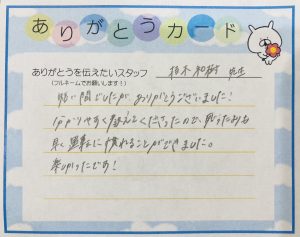 ありがとうカード
ありがとうを伝えたいスタッフ
(フルネームでお願いします!)
柏木 和樹 先生
短い間でしたが、ありがとうございました!
分かりやすく教えてくださったので、思ったよりも
早く運転に慣れることができました。
楽しかったです!